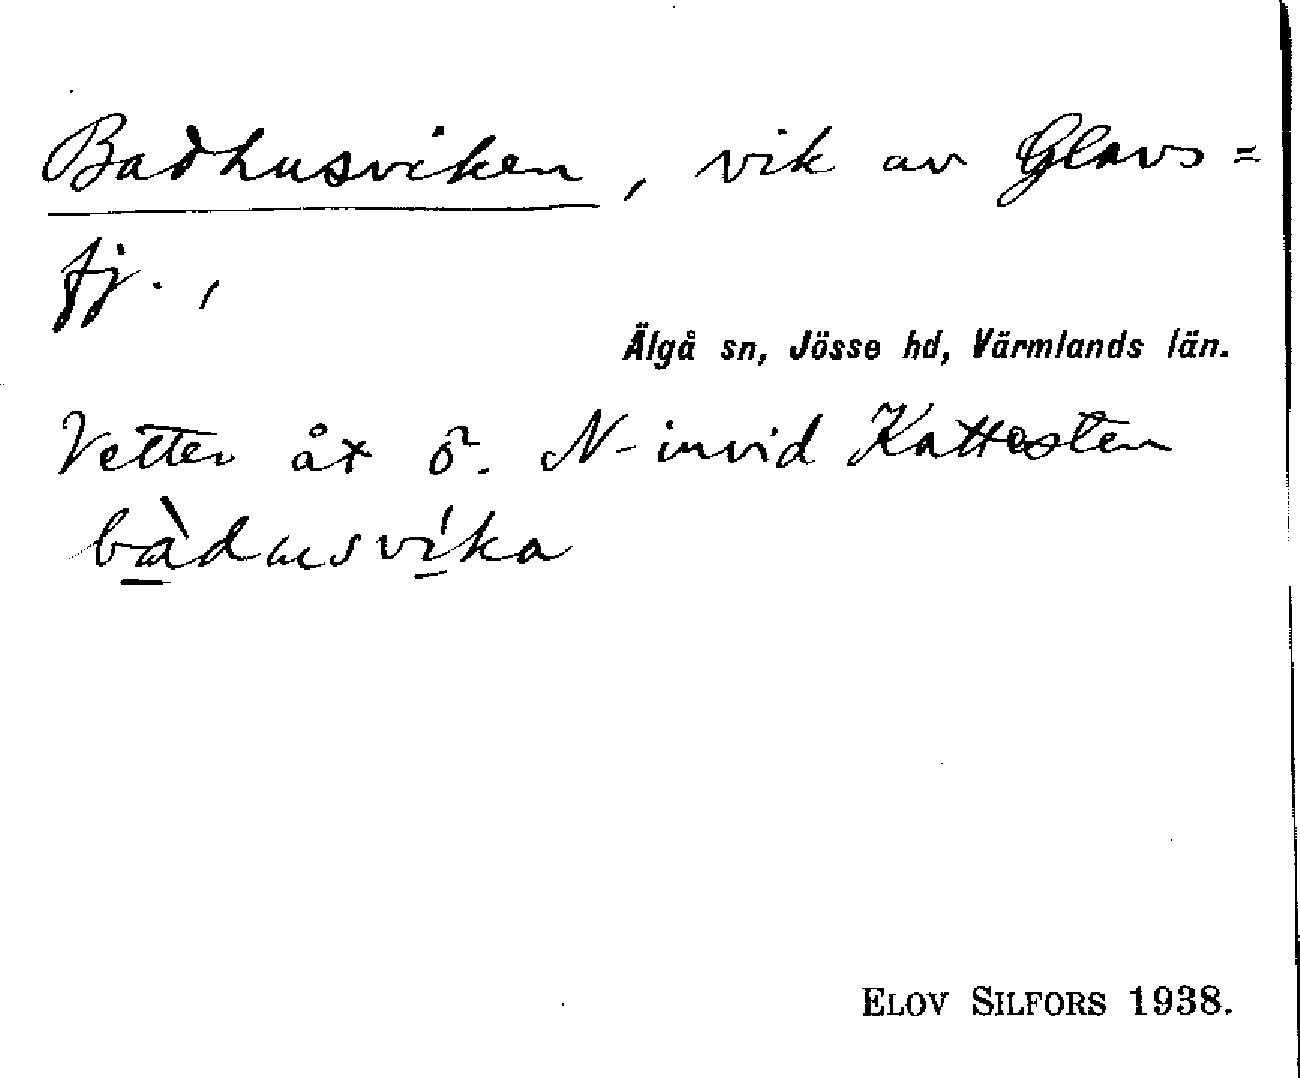 Badhusviken, vik av Glavs=
fj.,
Älgå sn, Jösse hd, Värmlands län.
Vetter åt ö. N-invid Kattesten
bàdusvi̍ka
ELOV SILFORS 1938.